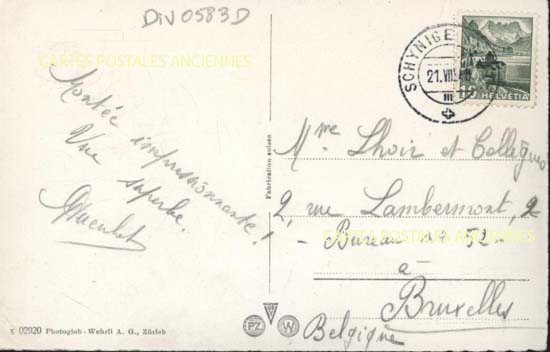 DiV0583D
CARTES POSTALES ANCIENNES
Montée impressionnante!
Vue superbe.
Fabrication suisse
SCHYNIGE
21. VIII
III
10 HELVETIA
Mme Lhoir et Collègues
2, rue Lambermont, 2
- Bureau no 52 -
CARTES POSTALES ANCIENNES
à
Bruxelles
Belgique
PZ
W
x 02920 Photoglob-Wehrli A. G., Zürich